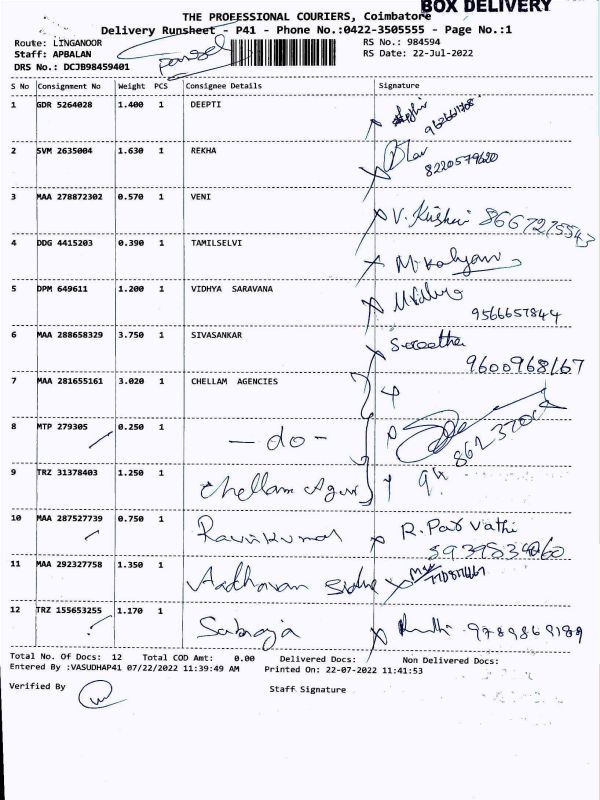 BOX DELIVERY
THE PROFESSIONAL COURIERS, Coimbatore
Delivery Runsheet - P41 - Phone No.:0422-3505555 - Page No.:1
Route: LINGANOOR RS No.: 984594
Staff: APBALAN RS Date: 22-Jul-2022
DRS No.: DCJB98459401
S No Consignment No Weight PCS Consignee Details Signature
1 GDR 5264028 1.400 1 DEEPTI
2 SVM 2635004 1.630 1 REKHA 8220579620
3 MAA 278872302 0.570 1 VENI V. 8667275543
4 DDG 4415203 0.390 1 TAMILSELVI M. Kalyani
5 DPM 649611 1.200 1 VIDHYA SARAVANA 9566657844
6 MAA 288658329 3.750 1 SIVASANKAR 9600968167
7 MAA 281655161 3.020 1 CHELLAM AGENCIES
8 MTP 279305 0.250 1 - do -
9 TRZ 31378403 1.250 1 Chellam
10 MAA 287527739 0.750 1 Ravikumar R. Parvathi
11 MAA 292327758 1.350 1 Aadhavan
12 TRZ 155653255 1.170 1 Sabroja 9789869189
Total No. Of Docs: 12 Total COD Amt: 0.00 Delivered Docs: Non Delivered Docs:
Entered By :VASUDHAP41 07/22/2022 11:39:49 AM Printed On: 22-07-2022 11:41:53
Verified By Staff Signature